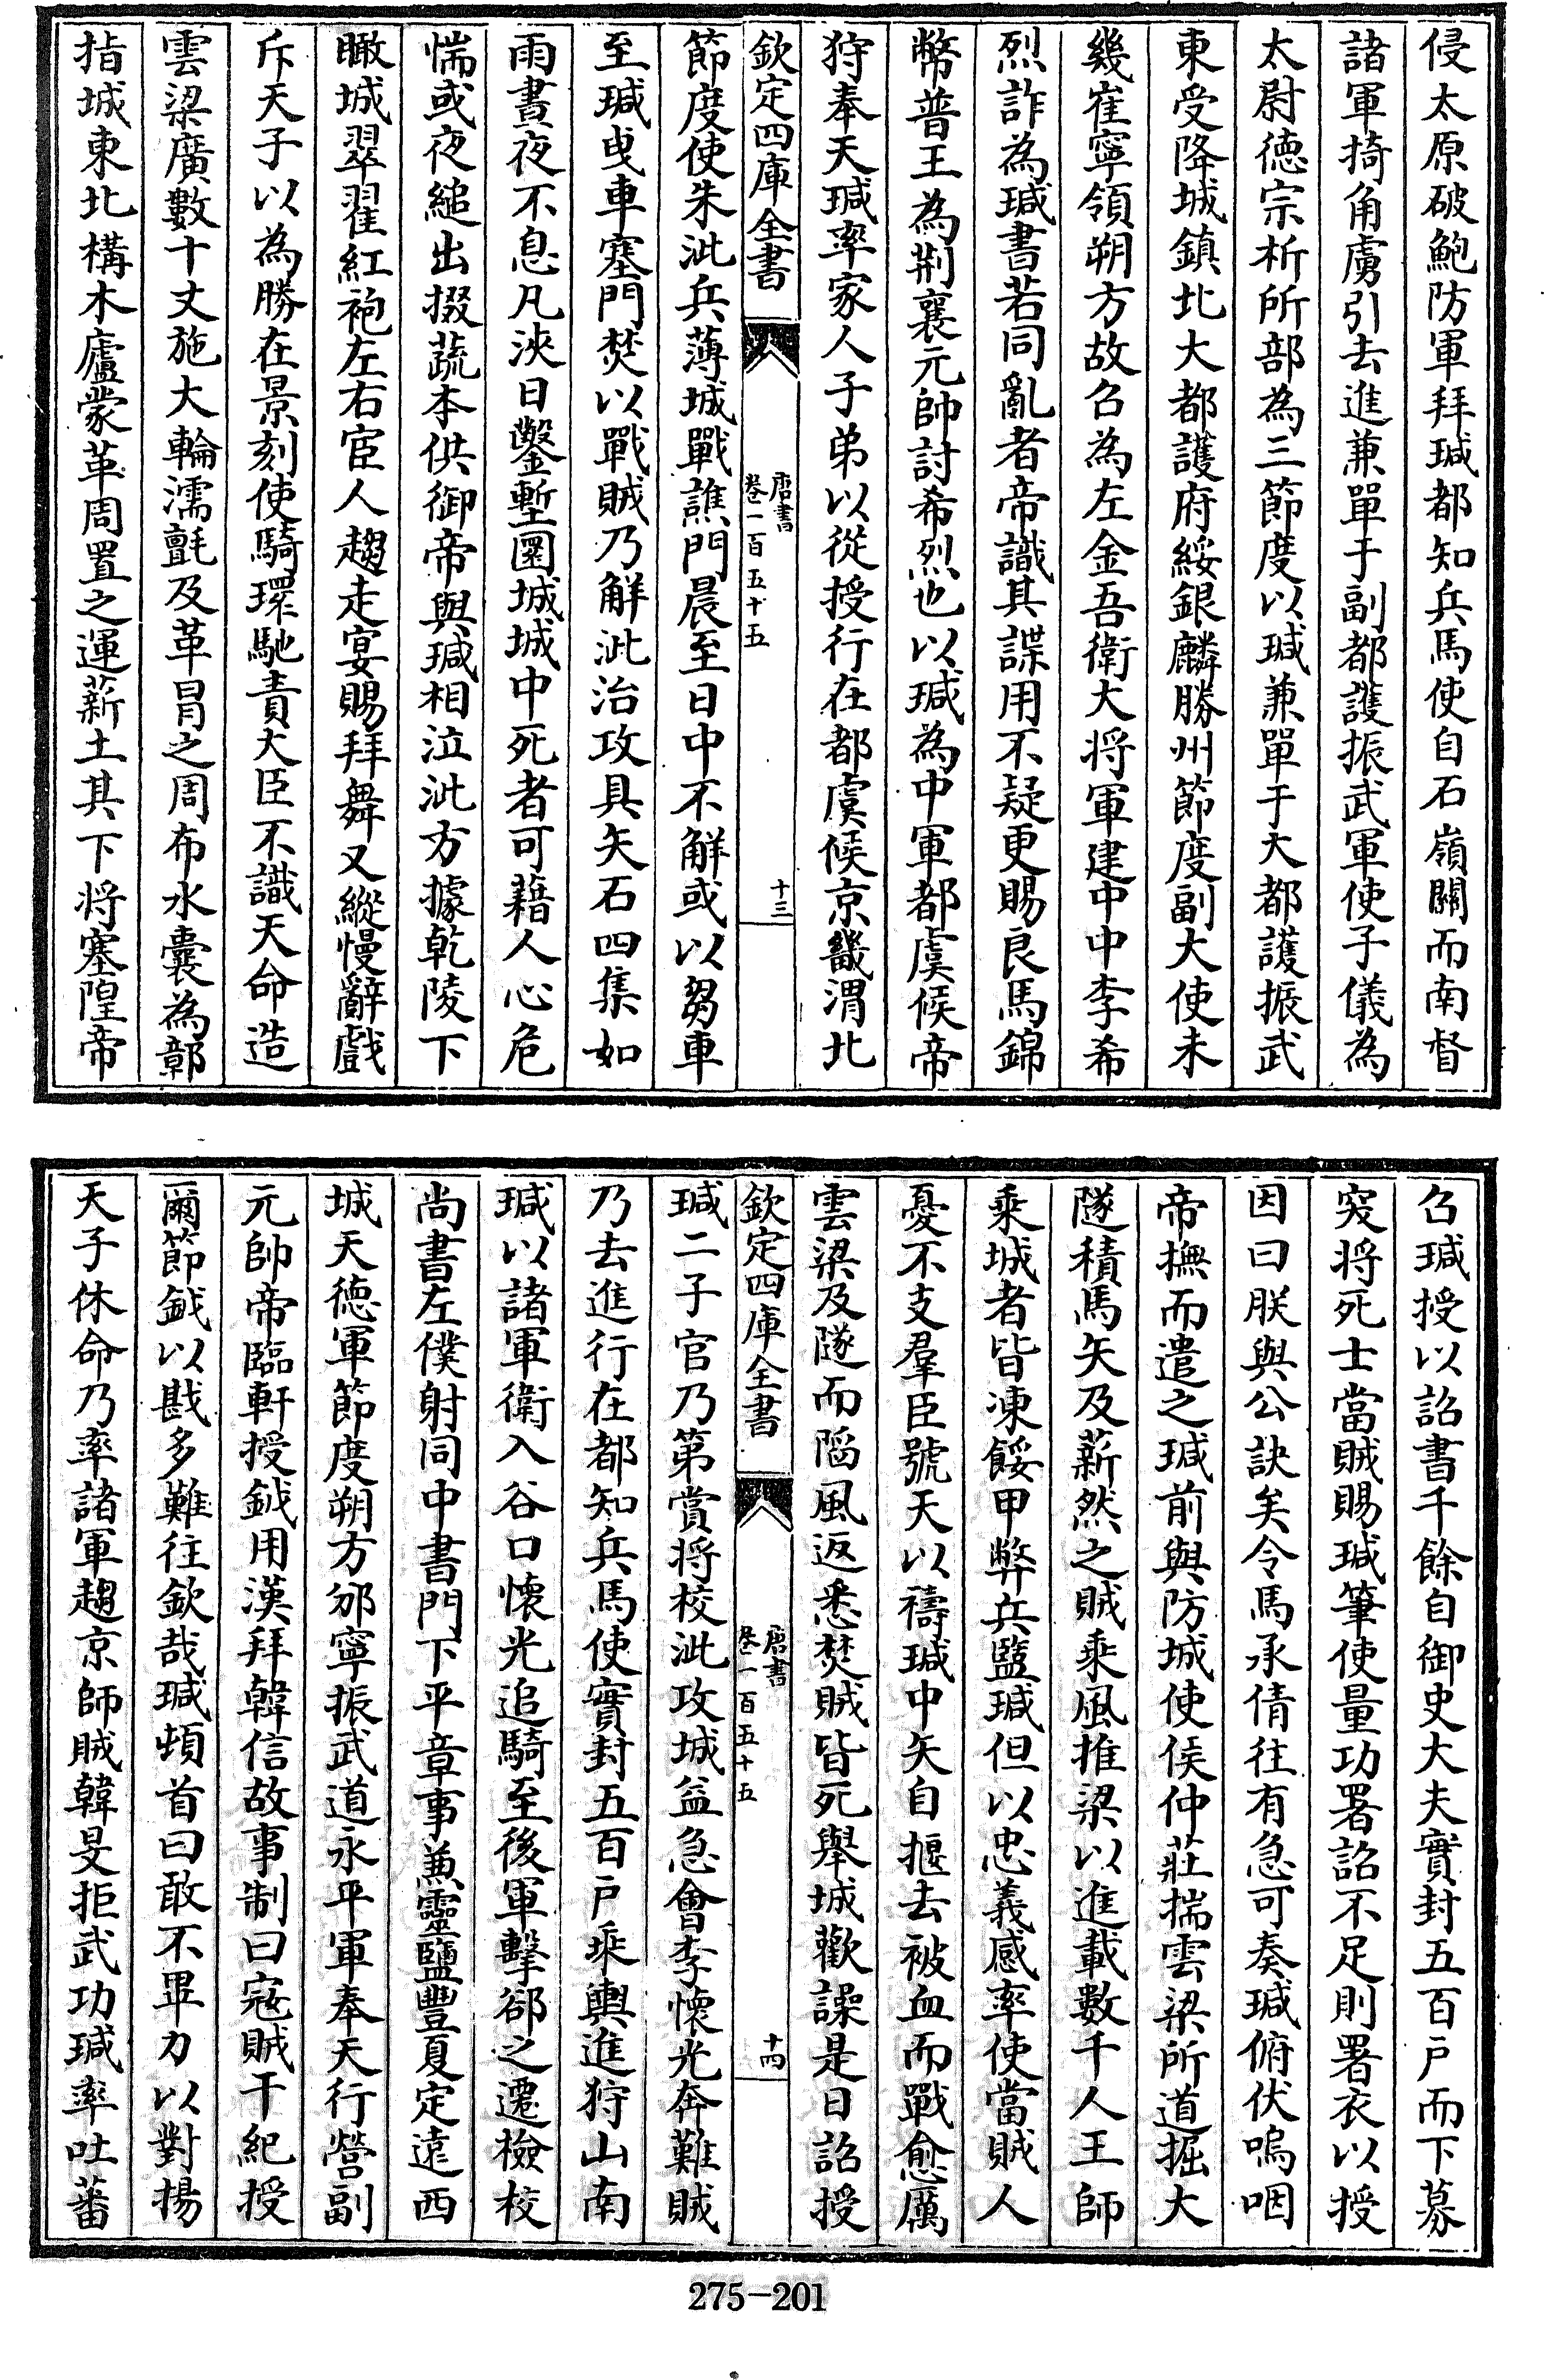 侵太原破鮑防軍拜瑊都知兵馬使自石嶺關而南督
諸軍掎角虜引去進兼單于副都護振武軍使子儀為
太尉德宗析所部為三節度以瑊兼單于大都護振武
東受降城鎮北大都護府綏銀麟勝州節度副大使未
幾崔寧領朔方故召為左金吾衛大將軍建中中李希
烈詐為瑊書若同亂者帝識其諜用不疑更賜良馬錦
幣普王為荆襄元帥討希烈也以瑊為中軍都虞候帝
狩奉天瑊率家人子弟以從授行在都虞候京畿渭北
欽定四庫全書
唐書
卷一百五十五
十三
節度使朱泚兵薄城戰譙門晨至日中不解或以芻車
至瑊曳車塞門焚以戰賊乃解泚治攻具矢石四集如
雨晝夜不息凡浹日鑿塹圜城城中死者可藉人心危
惴或夜縋出掇蔬本供御帝與瑊相泣泚方據乾陵下
瞰城翠翟紅袍左右宦人趨走宴賜拜舞又縱慢辭戲
斥天子以為勝在景刻使騎環馳責大臣不識天命造
雲梁廣數十丈施大輪濡氈及革冒之周布水囊為鄣
指城東北構木廬蒙革周置之運薪土其下將塞隍帝
召瑊授以詔書千餘自御史大夫實封五百戶而下募
突將死士當賊賜瑊筆使量功署詔不足則署衣以授
因曰朕與公訣矣令馬承倩往有急可奏瑊俯伏嗚咽
帝撫而遣之瑊前與防城使侯仲莊揣雲梁所道掘大
隧積馬矢及薪然之賊乘風推梁以進載數千人王師
乘城者皆凍餒甲弊兵盬瑊但以忠義感率使當賊人
憂不支羣臣號天以禱瑊中矢自揠去被血而戰愈厲
雲梁及隧而陷風返悉焚賊皆死舉城歡譟是日詔授
欽定四庫全書
唐書
卷一百五十五
十四
瑊二子官乃第賞將校泚攻城益急會李懷光奔難賊
乃去進行在都知兵馬使實封五百戶乘輿進狩山南
瑊以諸軍衛入谷口懷光追騎至後軍擊郤之遷檢校
尚書左僕射同中書門下平章事兼靈鹽豐夏定遠西
城天德軍節度朔方邠寧振武道永平軍奉天行營副
元帥帝臨軒授鉞用漢拜韓信故事制曰寇賊干紀授
爾節鉞以戡多難往欽哉瑊頓首曰敢不畢力以對揚
天子休命乃率諸軍趨京師賊韓旻拒武功瑊率吐蕃
275-201